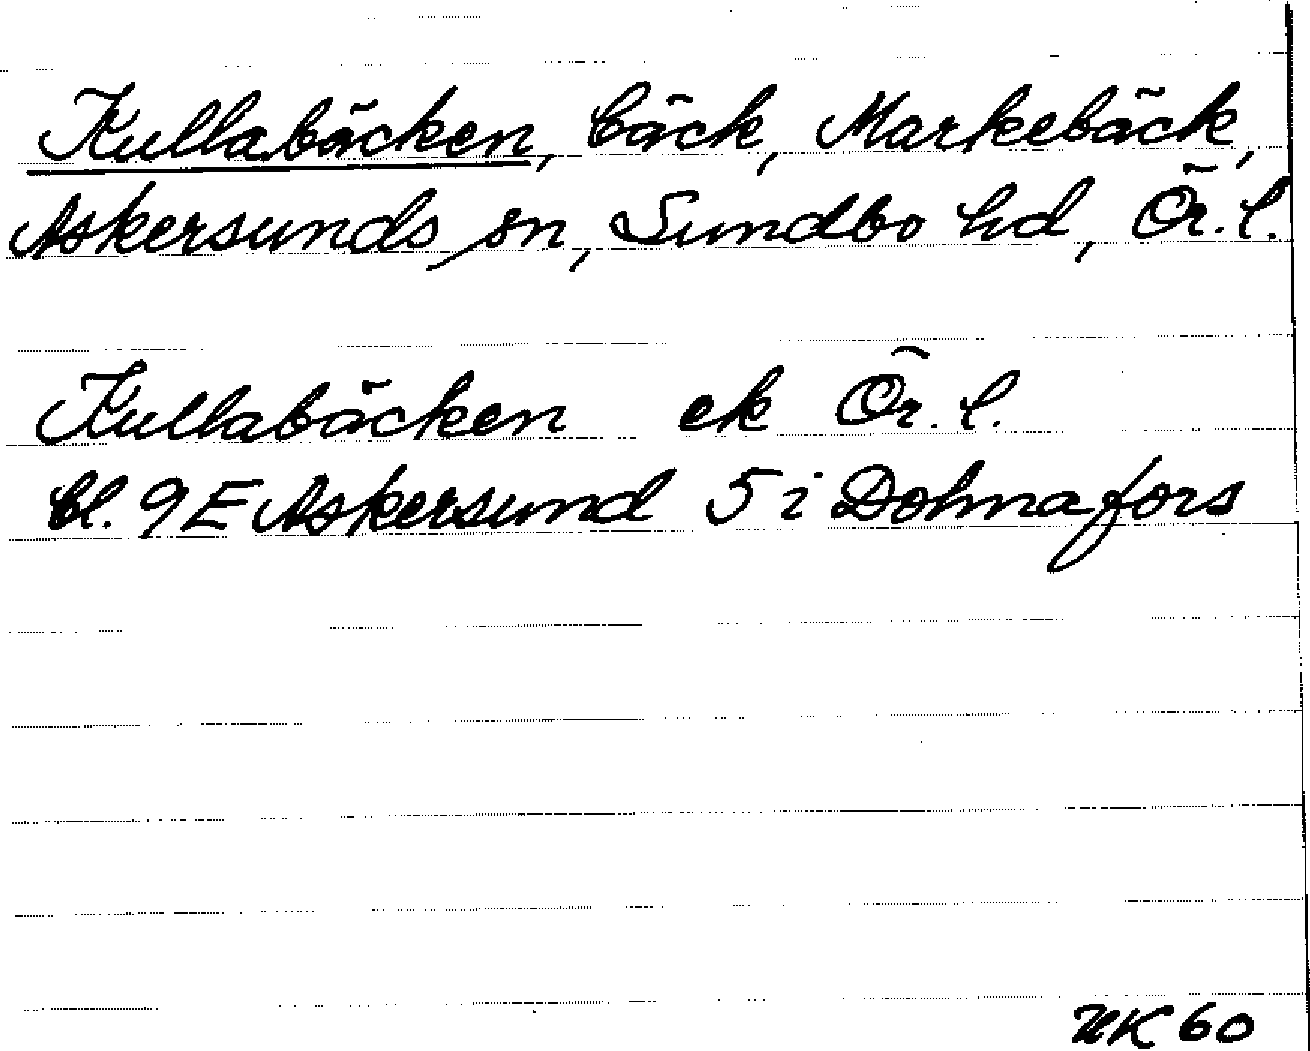 Kullabäcken, bäck, Markebäck,
Askersunds sn, Sundbo hd, Ör. l.
Kullabäcken ek Ör. l.
bl. 9E Askersund 5 i Dohnafors
NK 60